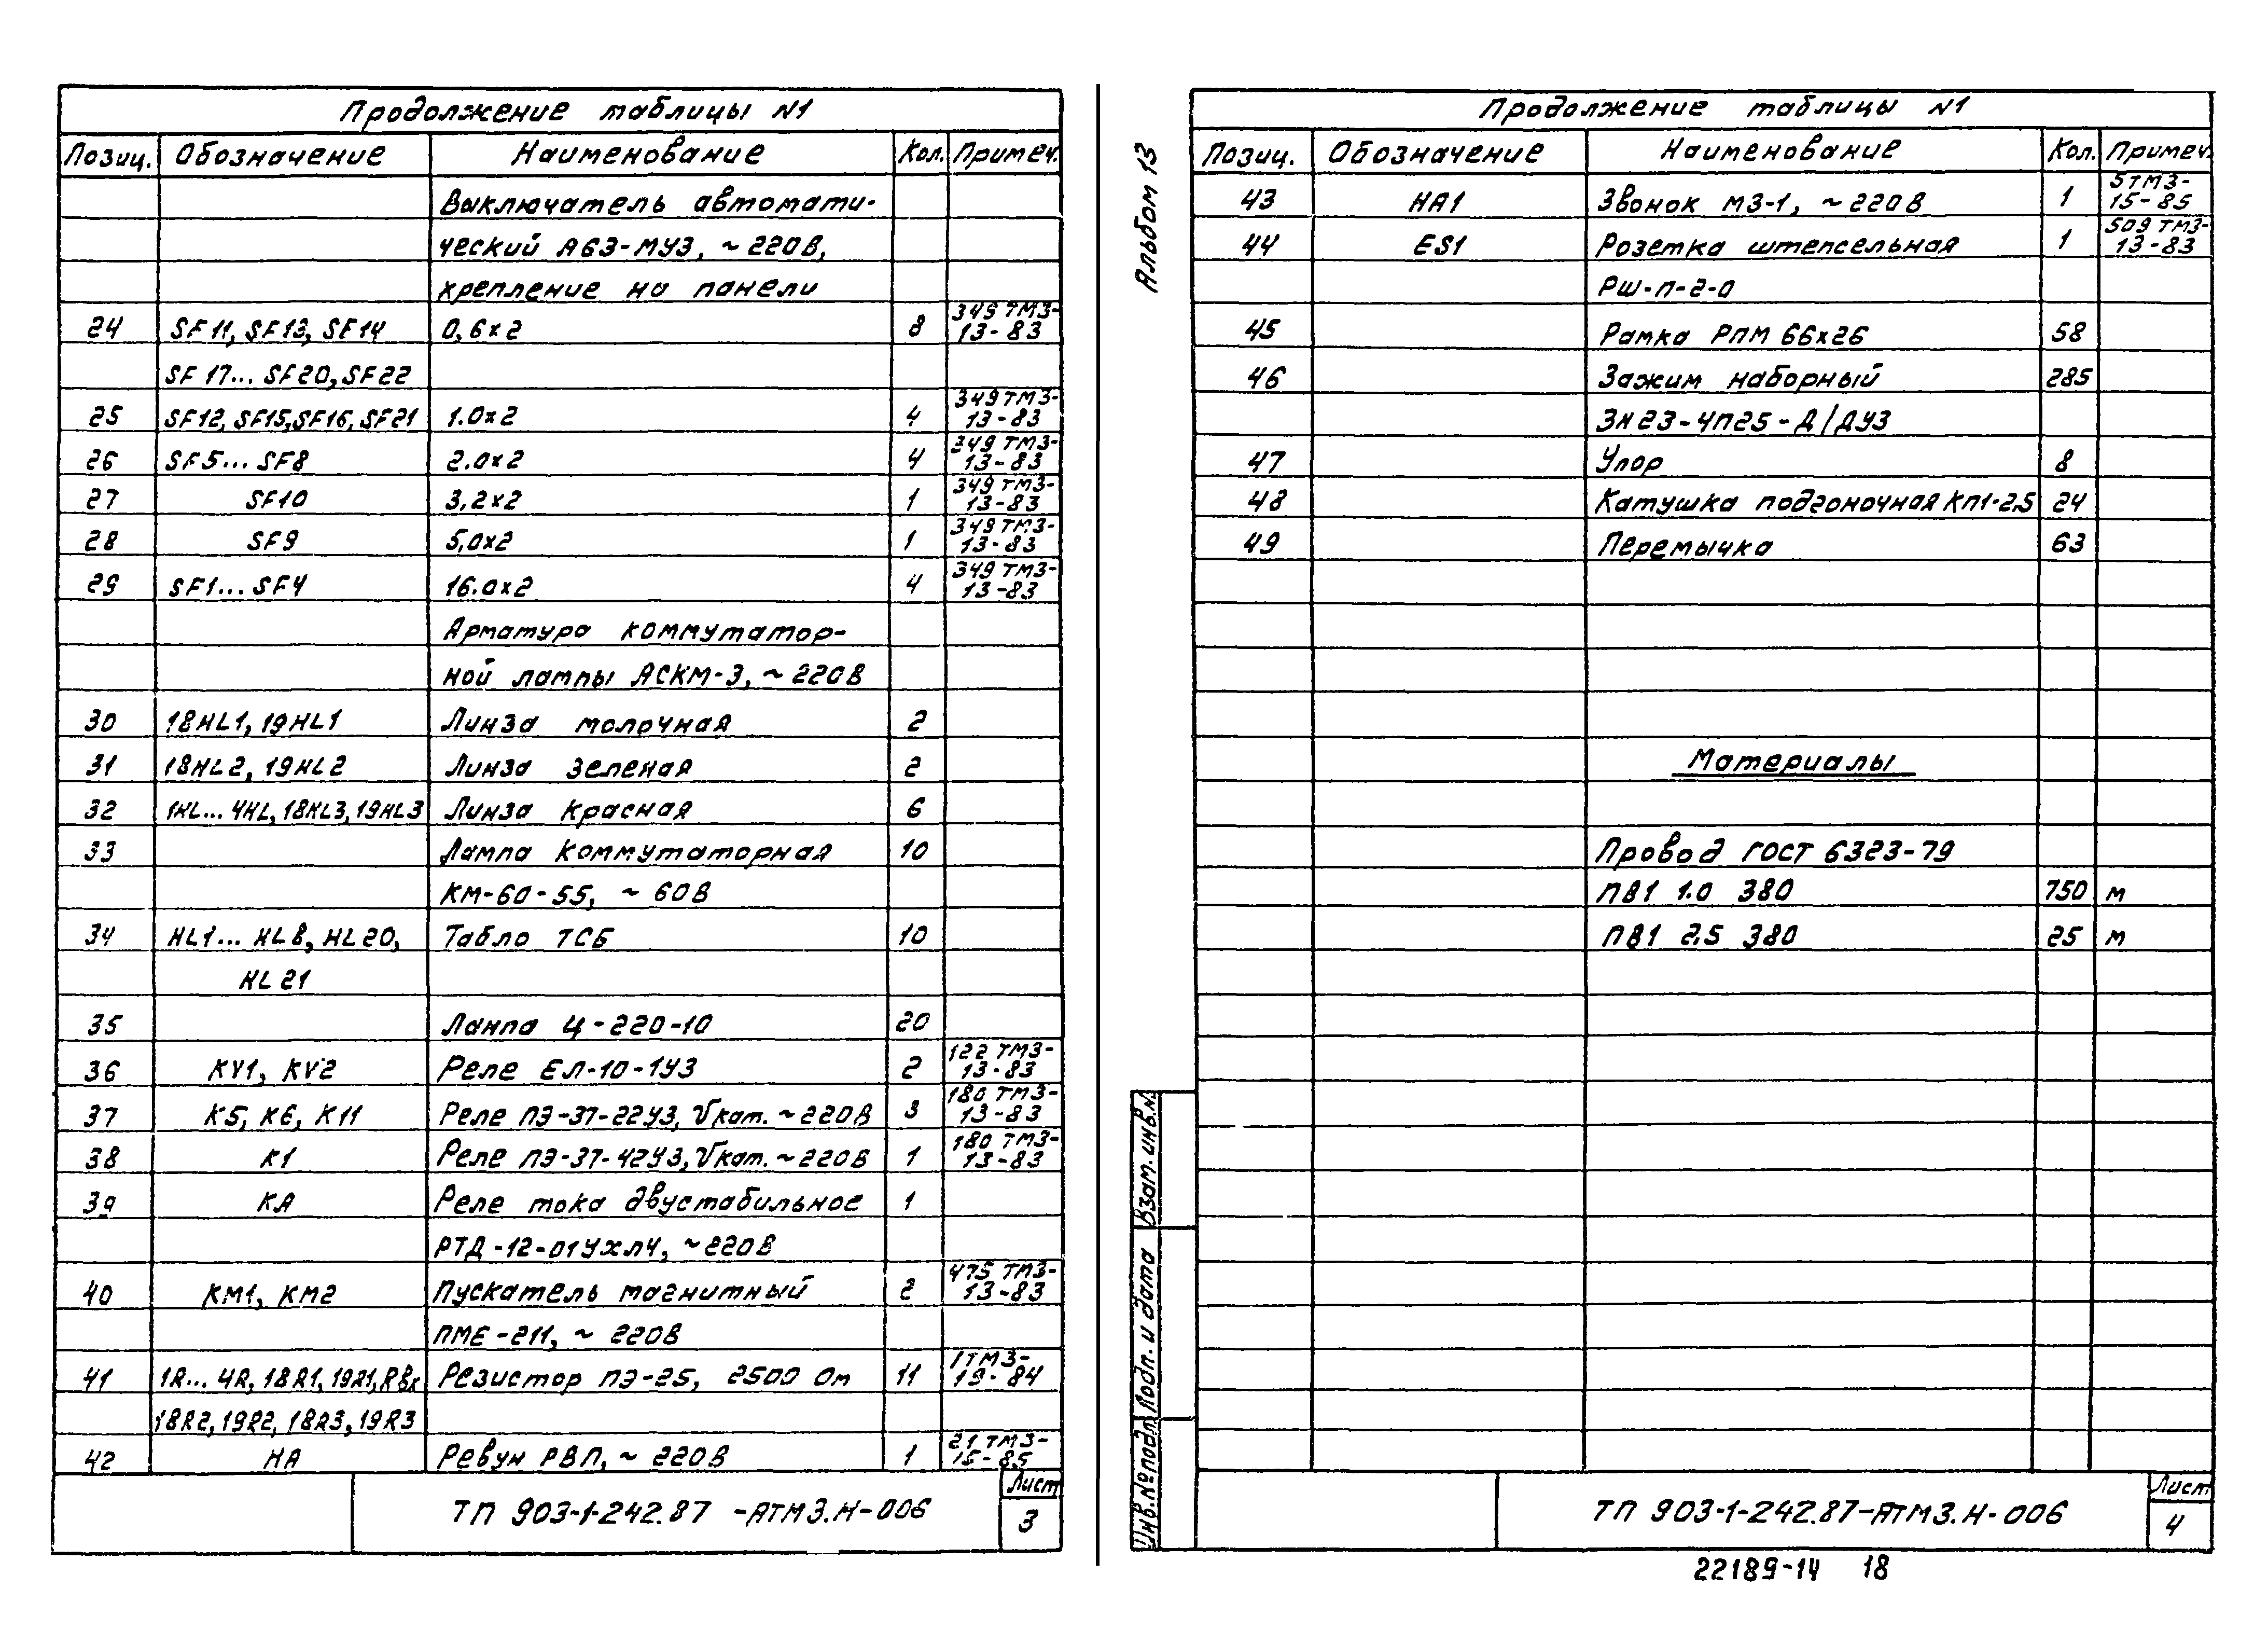 Продолжение таблицы N1
Позиц. Обозначение Наименование Кол. Примеч.
Выключатель автомати-
ческий А63-МУЗ, ~ 220В,
крепление на панели
24 SF11, SF13, SF14 0,6х2 8 349 ТМ3-13-83
SF17... SF20, SF22
25 SF12, SF15, SF16, SF21 1.0х2 4 349 ТМ3-13-83
26 SF5... SF8 2.0х2 4 349 ТМ3-13-83
27 SF10 3,2х2 1 349 ТМ3-13-83
28 SF9 5,0х2 1 349 ТМ3-13-83
29 SF1... SF4 16.0х2 4 349 ТМ3-13-83
Арматура коммутатор-
ной лампы АСКМ-3, ~ 220В
30 18HL1, 19HL1 Линза молочная 2
31 18HL2, 19HL2 Линза зеленая 2
32 1HL... 4HL, 18HL3, 19HL3 Линза красная 6
33 Лампа коммутаторная 10
КМ-60-55, ~ 60В
34 HL1... HL8, HL20, Табло ТСБ 10
HL21
35 Лампа Ц-220-10 20
36 KV1, KV2 Реле ЕЛ-10-1У3 2 122 ТМ3-13-83
37 К5, К6, К11 Реле ПЭ-37-22У3, Uкат. ~ 220В 3 180 ТМ3-13-83
38 К1 Реле ПЭ-37-42У3, Uкат. ~ 220В 1 180 ТМ3-13-83
39 КА Реле тока двустабильное 1
РТД-12-01УХЛ4, ~220В
40 КМ1, КМ2 Пускатель магнитный 2 475 ТМ3-13-83
ПМЕ-211, ~ 220В
41 1R... 4R, 18R1, 19R1, Rвх Резистор ПЭ-25, 2500 Ом 11 1ТМ3-19-84
18R2, 19R2, 18R3, 19R3
42 НА Ревун РВП, ~ 220В 1 21 ТМ3-15-85
ТП 903-1-242.87 -АТМ3.Н-006
Лист
3
Альбом 13
Продолжение таблицы N1
Позиц. Обозначение Наименование Кол. Примеч.
43 НА1 Звонок МЗ-1, ~ 220В 1 5ТМ3-15-85
44 ES1 Розетка штепсельная 1 509 ТМ3-13-83
РШ-п-2-0
45 Рамка РПМ 66х26 58
46 Зажим наборный 285
ЗН23-4П25-Д/ДУ3
47 Упор 8
48 Катушка подгоночная КП1-2,5 24
49 Перемычка 63
Материалы
Провод ГОСТ 6323-79
ПВ1 1.0 380 750 м
ПВ1 2,5 380 25 м
Взам. инв.N
Подп. и дата
Инв.№подл.
ТП 903-1-242.87-АТМ3.Н-006
Лист
4
22189-14 18